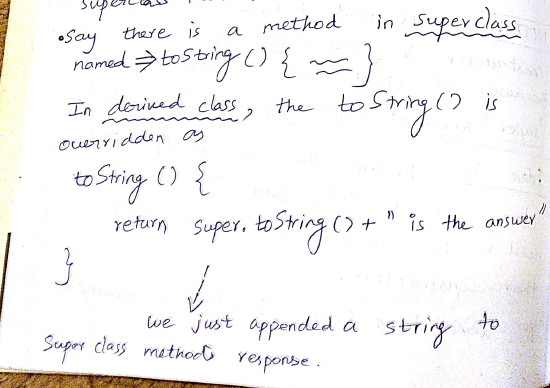 superclass
•Say there is a method in superclass
named ⇒ toString () { ~~ }
In derived class, the toString() is
overridden as
toString () {
return super. toString () + " is the answer"
}
we just appended a string to
Super class methods response.